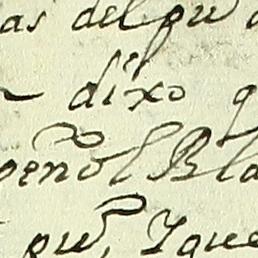 as del pu
dixo q
peñol Bla
pu, Y que